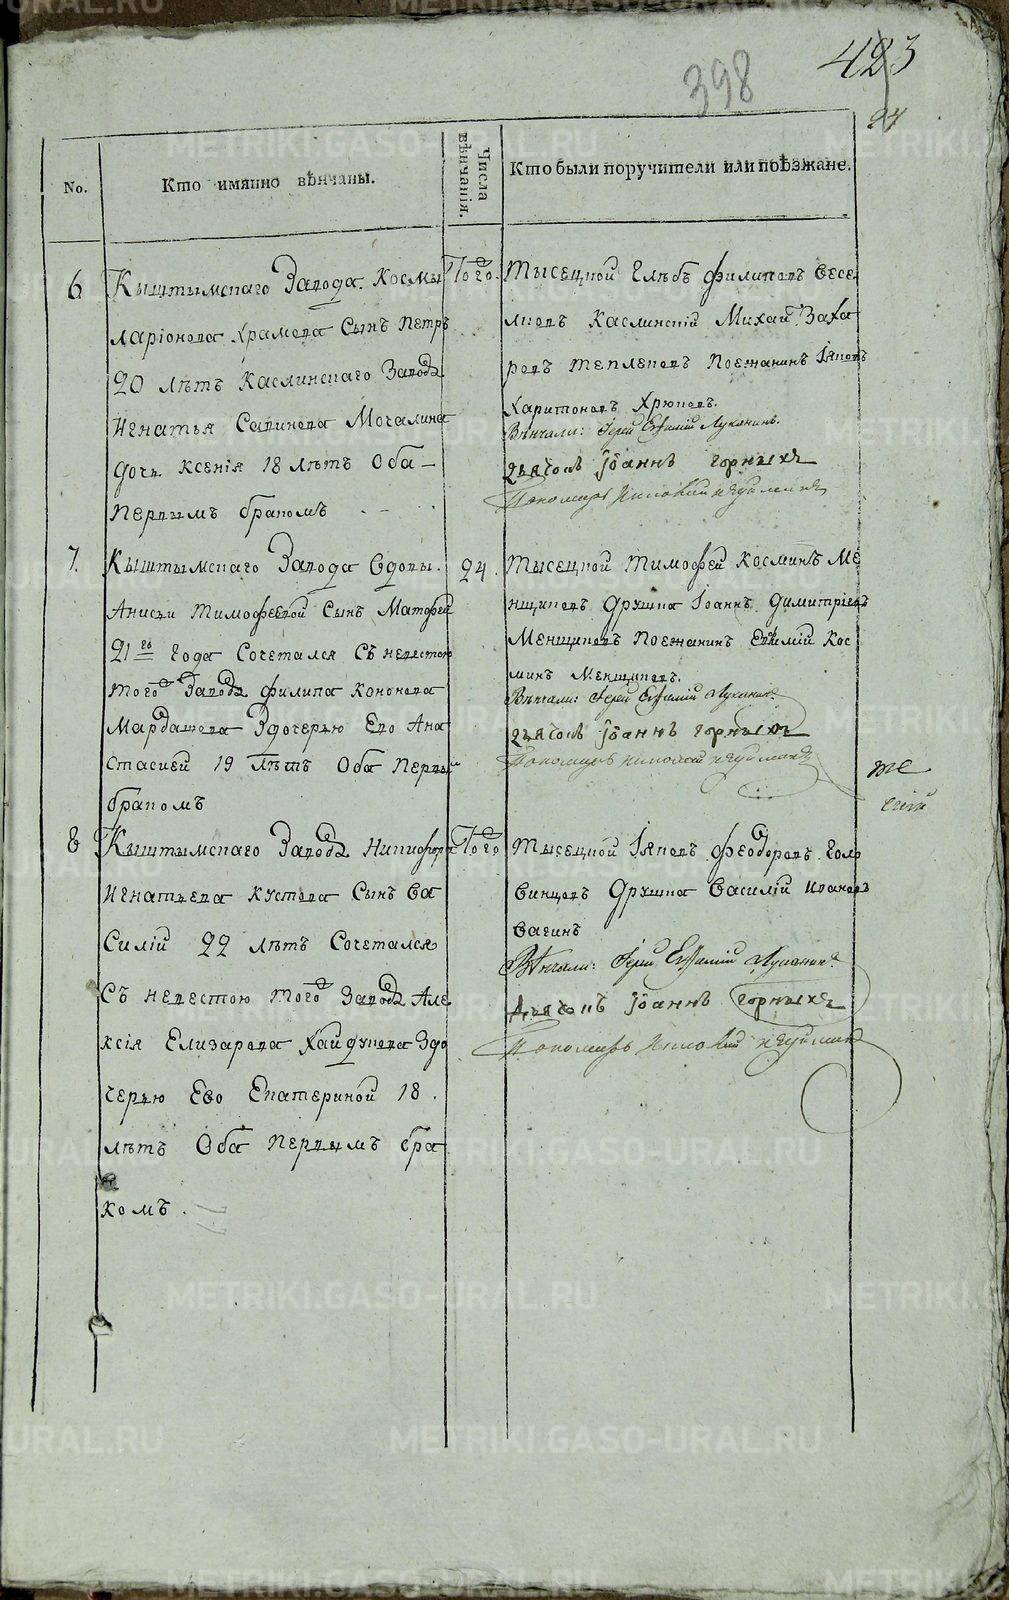 423
398
94
No.
Кто имянно вѣнчаны.
Числа вѣнчанія.
Кто были поручители или поѣзжане.
6
Кыштымскаго Завода Космы
ларіонова Храмова Сынъ Петръ
20 лѣтъ Каслинскаго Завода
Игнатья Савинова Мочалина
дочь Ксенія 18 лѣтъ Оба
первымъ бракомъ
Того.
Тысецкой Глѣбъ Филиповъ Весе
лковъ Каслинскій Михай Заха
ровъ Тепляковъ Поежанинъ Іяковъ
Харитоновъ Хрюковъ.
Вѣнчали: Іерей Евѳимій Луканинъ.
дьячокъ Іоаннъ Горныхъ
Пономарь Николай
7.
Кыштымскаго Завода Вдовы
Анисьи Тимофеевой Сынъ Матфей
21го года Сочетался Съ невестою
того Завода Филипа Кононова
Мардашева Здочерью Его Ана
стасией 19 лѣтъ Оба первый
бракомъ
24.
Тысецкой Тимофей Косминъ Ме
нщиковъ Дружка Іоаннъ Димитріевъ
Менщиковъ Поежанинъ Евѳимій Кос
минъ Менщиковъ.
Вѣнчали: Іерей Евѳимій Луканинъ.
дьячокъ Іоаннъ Горныхъ
Пономарь Николай
8
Кыштымскаго Завода Никифора
Игнатьева Кустова Сынъ Ва
силій 22 лѣтъ Сочетался
Съ невестою того Завода Але
ксія Елизарова Хайдукова Здо
черью Ево Екатериной 18.
лѣтъ Оба первымъ бра
комъ.
Того
Тысецкой Іяковъ Феодоровъ Голо
винцовъ Дружка Василій Ивановъ
Вагинъ
Вѣнчали: Іерей Евѳимій Луканинъ.
Дьячокъ Іоаннъ Горныхъ
Пономарь Николай
METRIKI.GASO-URAL.RU